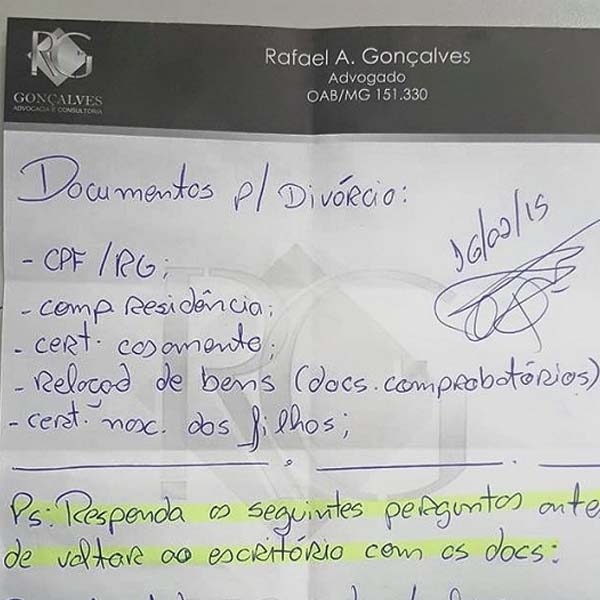 RG
GONÇALVES
ADVOCACIA E CONSULTORIA
Rafael A. Gonçalves
Advogado
OAB/MG 151.330
Documentos p/ Divórcio:
16/02/15
- CPF/RG;
- comp. Residência;
- cert. casamento;
- Relação de bens (docs. comprobatórios)
- cert. nasc. dos filhos;
Ps: Responda as seguintes perguntas ante
de voltar ao escritório com os docs: